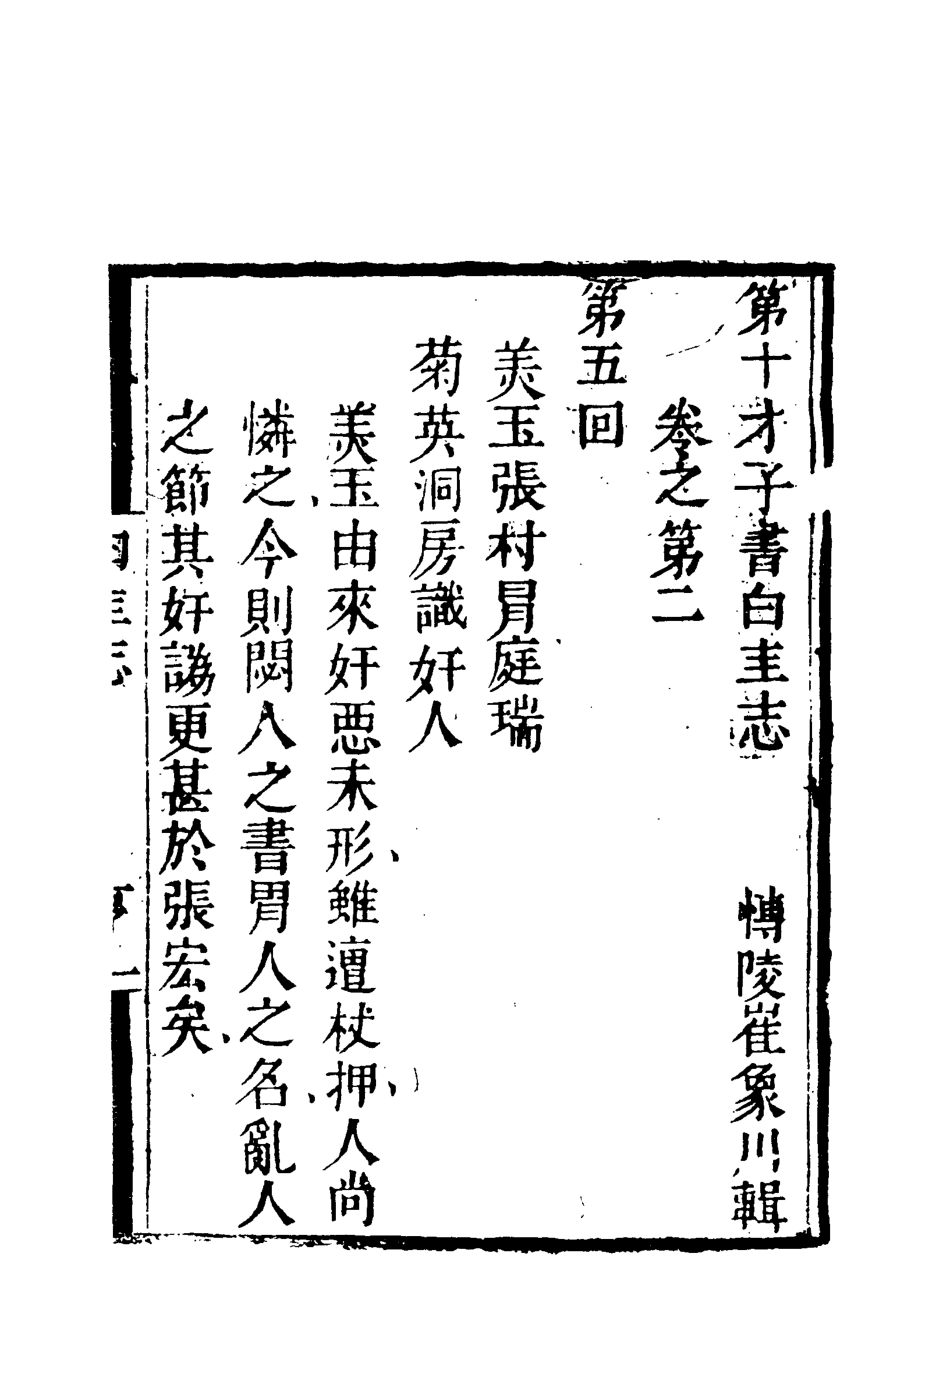 第十才子書白圭志 博陵崔象川輯
卷之第二
第五回
美玉張村冐庭瑞
菊英洞房識奸人
美玉由來奸惡未形、雖遭杖押、人尚
憐之、今則閟人之書冐人之名、亂人
之節其奸謅更甚於張宏矣、
白圭志